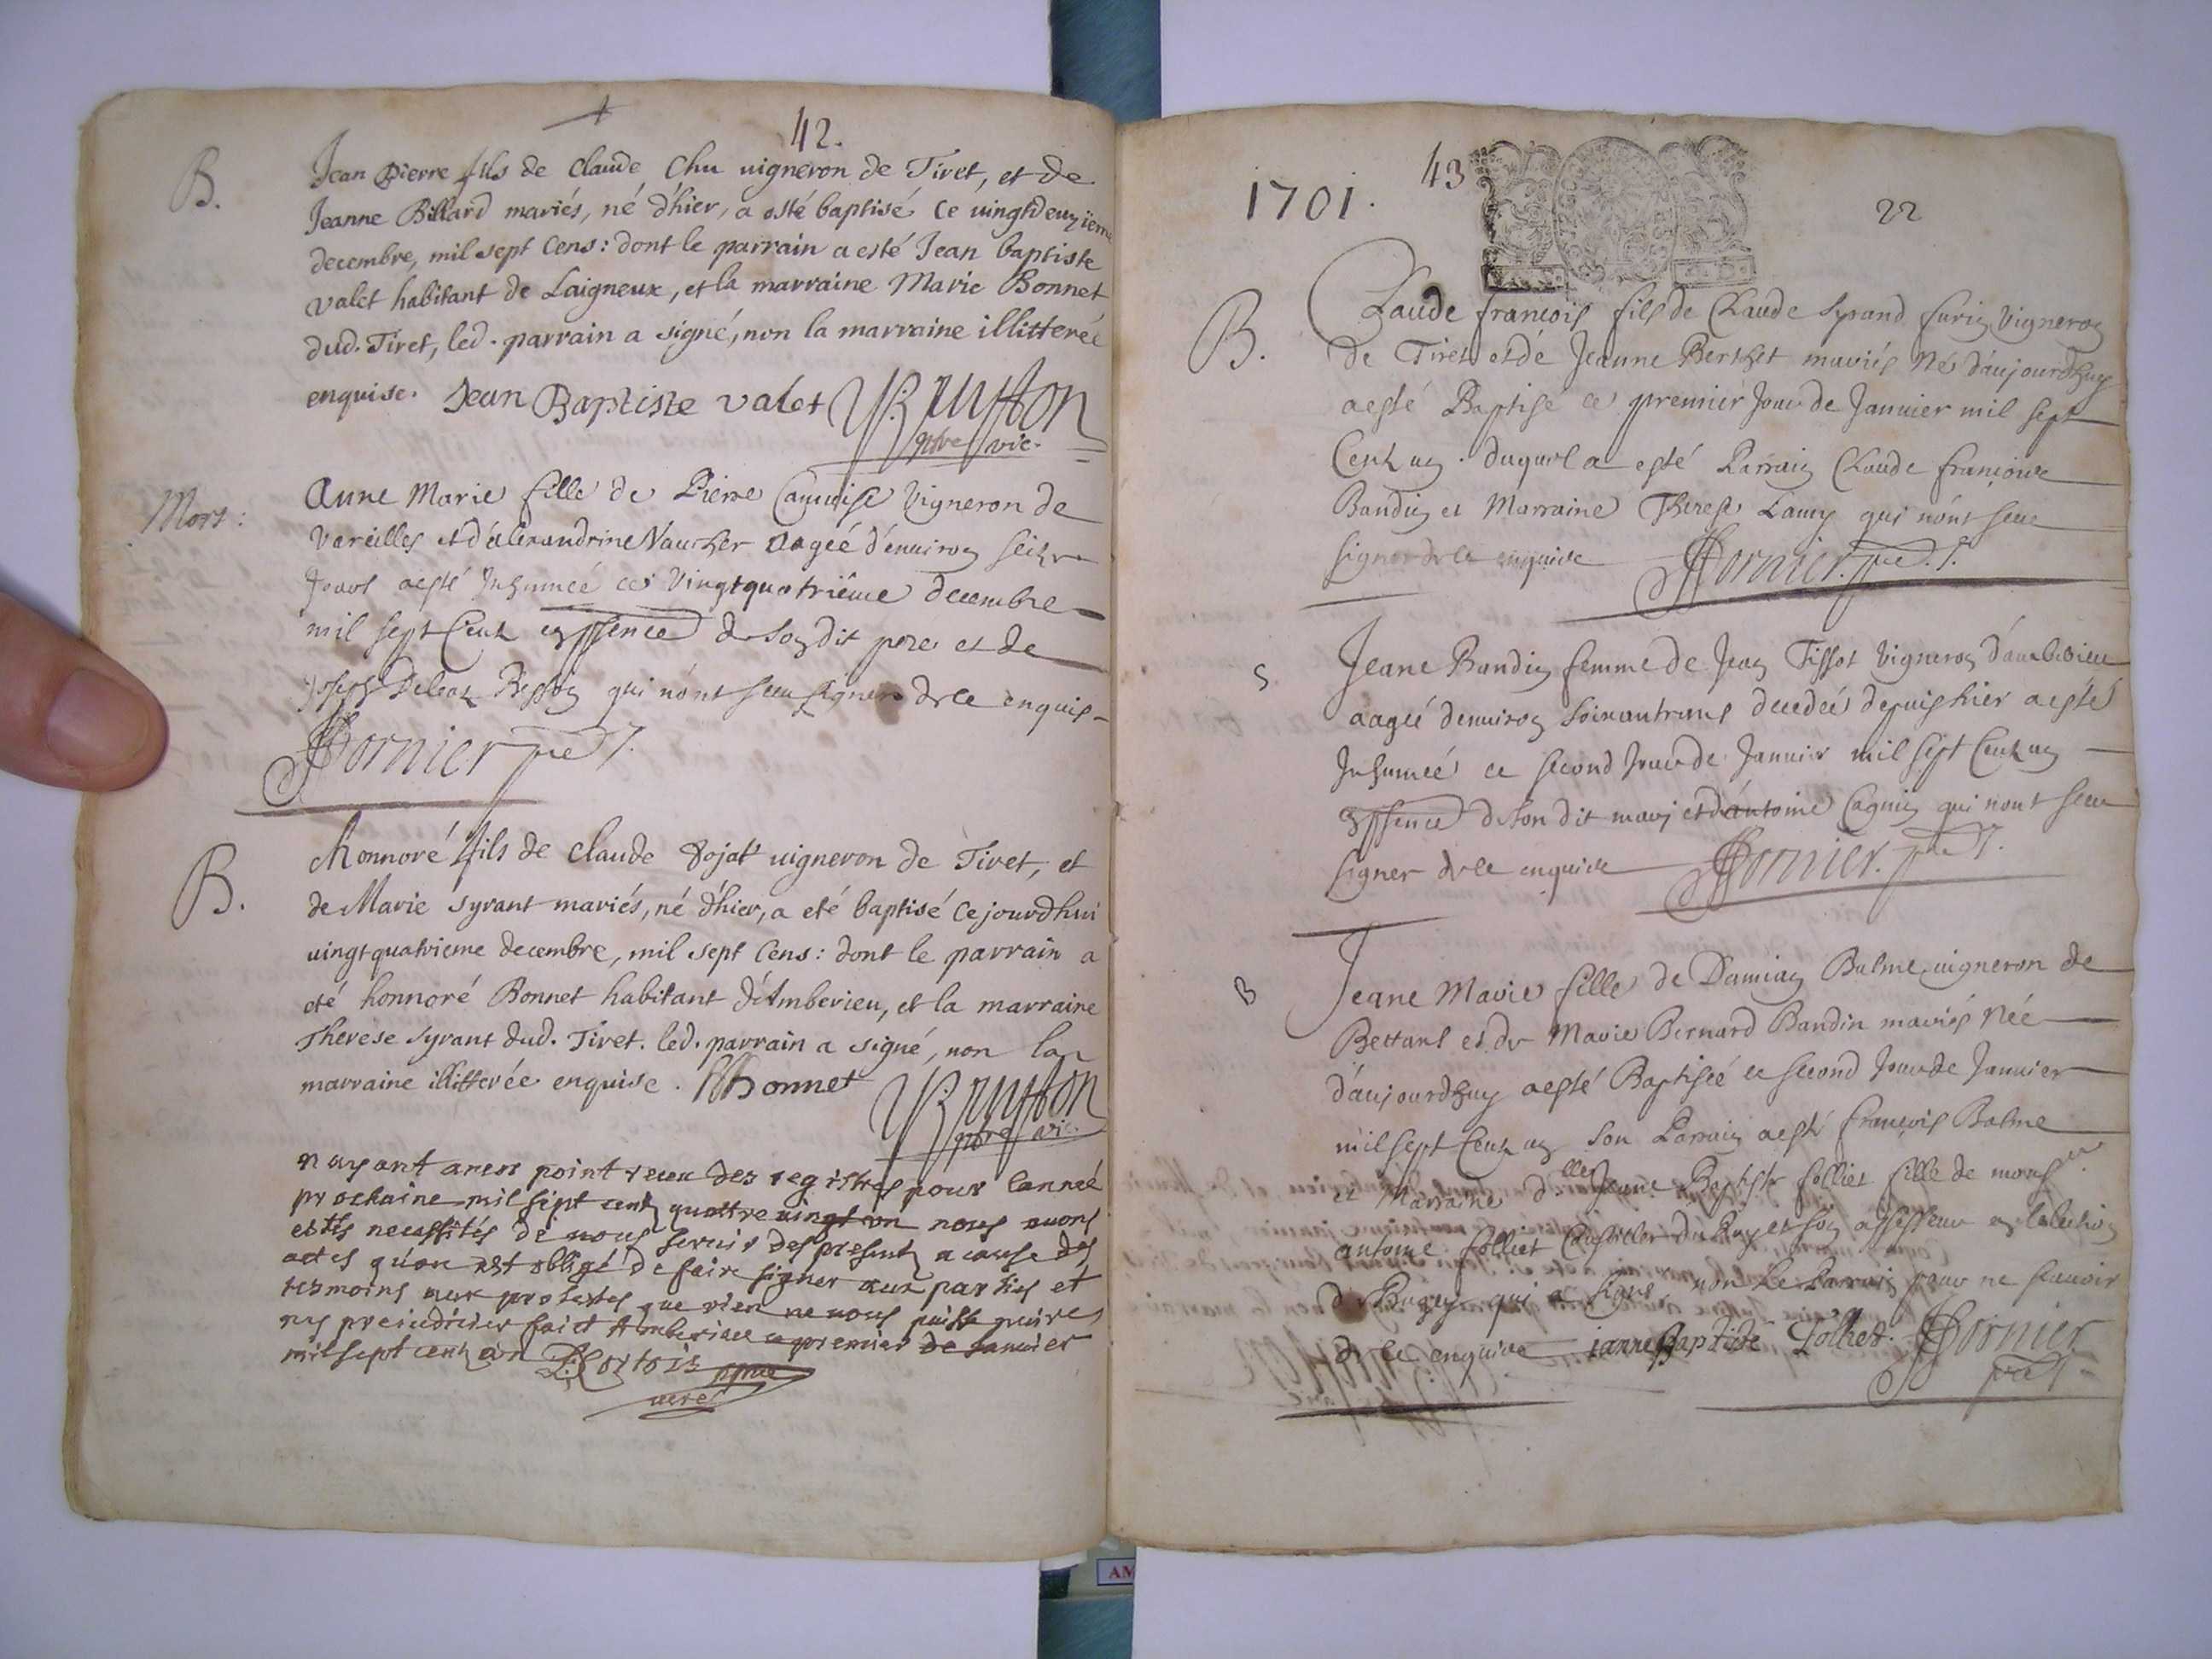 42.
B.
Jean Pierre fils de Claude Chu vigneron de Tiret, et de
Jeanne Billard mariés, né d'hier, a esté baptisé ce vingtdeuzieme
decembre, mil sept cens: dont le parrain a esté Jean baptiste
valet habitant de Laigneux, et la marraine Marie Bonnet
dud. Tiret, led. parrain a signé, non la marraine illitterée
enquise. Jean Baptiste valet
ptre vic.
Mors:
Anne Marie fille de Pierre vigneron de
Vareilles et d'alexandrine Vaucher aagée d'environ seize
Jours a esté Inhumée ce vingtquatriême decembre
mil sept Centz en psence de son dit pere et de
Joseph qui n'ont sceu signer de ce enquis
Dornier
B.
Honnoré fils de Claude Dojat vigneron de Tiret, et
de Marie Syrant mariés, né d'hier, a eté baptisé cejourdhui
vingtquatrieme decembre, mil sept cens: dont le parrain a
eté honnoré Bonnet habitant d'Amberieu, et la marraine
Therese Syrant dud. Tiret. led. parrain a signé, non la
marraine illitterée enquise. Hbonnet
ptre vic.
n ayant ancor point receu des registres pour lannée
prochaine mil sept centz quattre vingt un nous avons
estés necessités de nous servir des presentz a cause des
actes qu'on est obligé de faire signer aux parties et
tesmoins avec protestes que rien ne nous puisse nuire
ny preiudicier faict Amberieu ce premier de Janvier
mil sept centz un
43
1701.
22
B.
Claude francois fils de Claude Syrand vigneron
de Tiret et de Jeanne Berthet mariés Né d'aujourdhuy
a esté Baptisé ce premier Jour de Janvier mil sept
Centz un. duquel a esté Parrain Claude francois
Baudin et Marraine Therese Lamy qui n'ont sceu
signer de ce enquis Dornier
S
Jeane Baudin femme de Jean Tissot vigneron d'amberieu
aagée denviron soixantrans decedée depuis hier a esté
Inhumée ce second Jour de Janvier mil sept Centz un
en psence de son dit mary et d'antoine Cagnin qui n'ont sceu
signer de ce enquis Dornier.
B
Jeane Marie fille de Damian Balme vigneron de
Bettant et de Marie Bernard Baudin mariés Née
d'aujourdhuy a esté Baptisée ce second Jour de Janvier
mil sept Centz un son Parrain a esté francois Balme
et Marraine dlle Jeane Baptiste folliet fille de monsr
antoine folliet Conseiller du Roy et son assesseur en l'election
de Bugey qui a signé, non le Parrain pour ne scavoir
de ce enquis janne Baptiste Folliet. Dornier